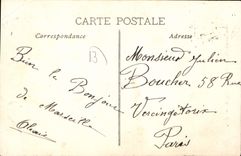 CARTE POSTALE
Correspondance
Adresse
13
Bien le Bonjour
de Marseille
Monsieur Julien
Boucher 58 Rue
Vercingétorix
Paris